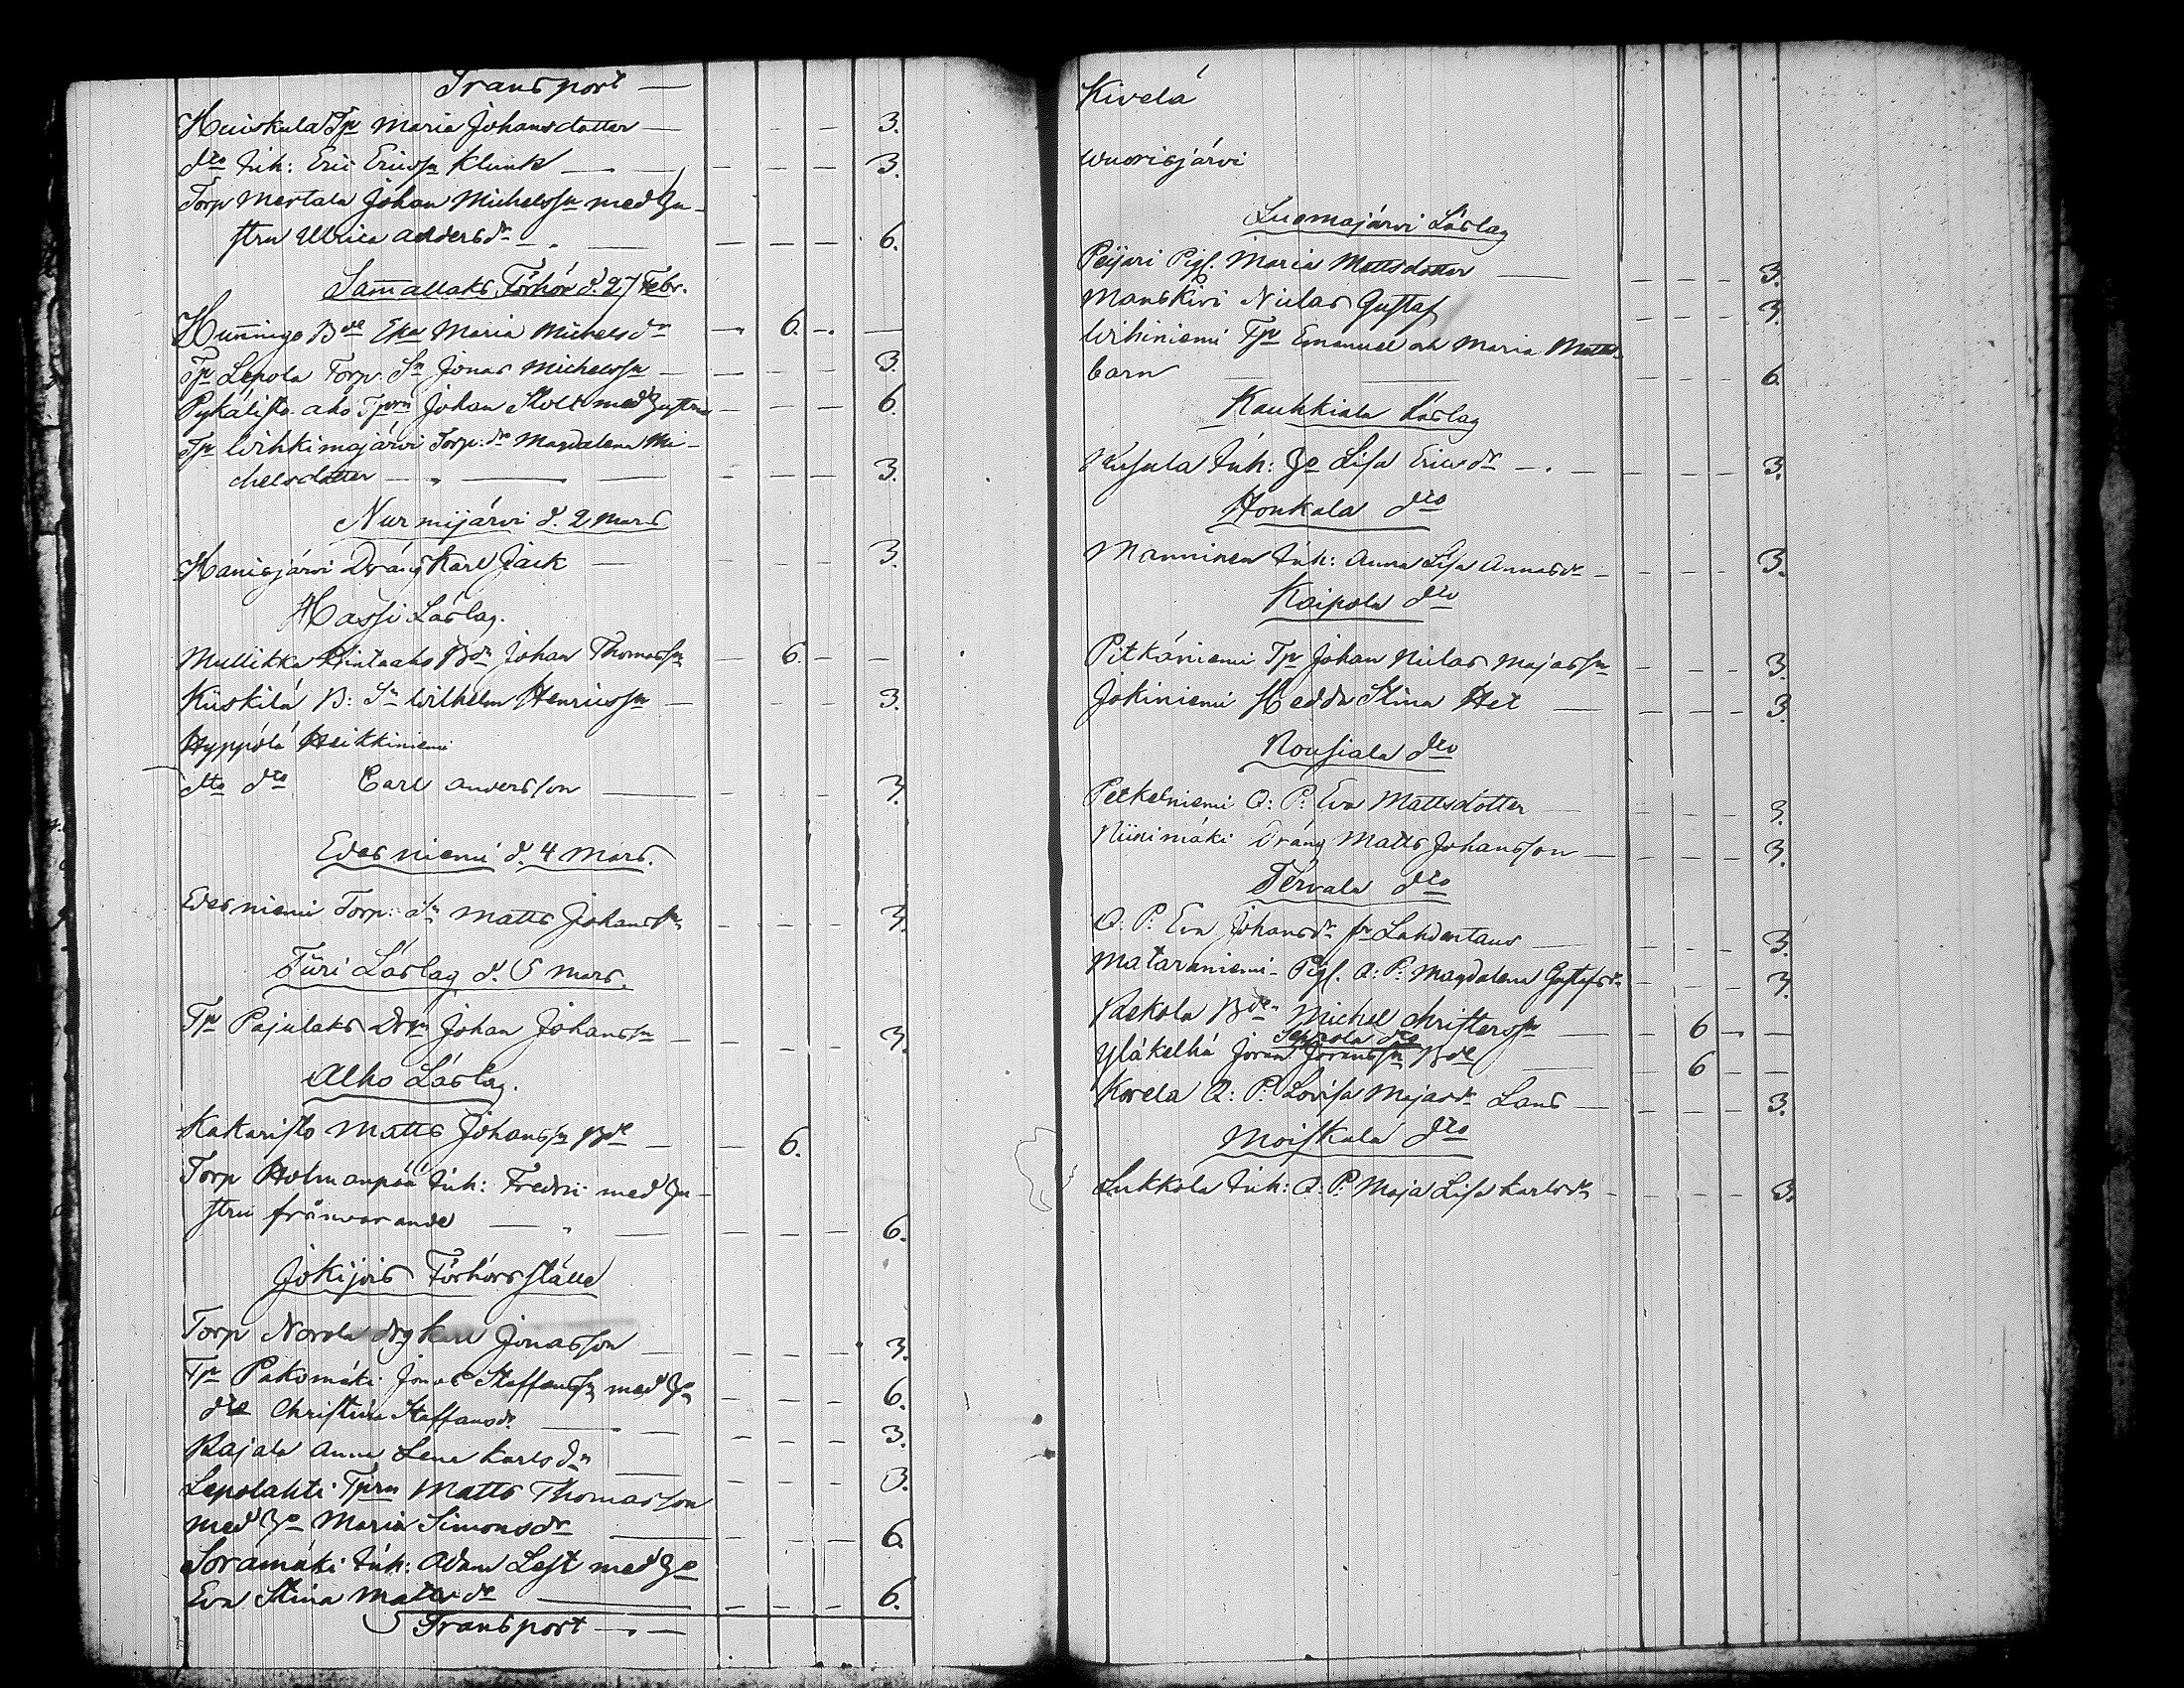 Transport —
Huiskula Tp Maria Johansdotter — - - - 3.
dto Inh: Eric Ericssn Klunk — - - - 3.
Torp Mertala Johan Michelssn med Hu-
stru Ulrica Andersdr — - - - 6.
Sammallaks Förhör d. 27 Febr.
Hunningo Bde Eka Maria Michelsdr — 6. - —
Tp Lepola Torp: Sn Jonas Michelssn — - - - 3.
Pykälistö aho Tprn Johan Stolt med Hustru - - - 6.
Tp Wihkimajärvi Torp: dr Magdalena Mi-
chelsdotter — - - - 3.
Nurmijärvi d. 2 Mars
Hanisjärvi Dräng Karl Jäck — - - - 3.
Hassi Läslag.
Mullikka Hintaaho Bdn Johan Thomassn — 6. - -
Kiiskilä B: Sn Wilhelm Henricssn — - - 3.
Hyppölä Heikkiniemi
dto dto Carl Andersson — - - - 3.
Edesniemi d. 4 Mars.
Edesniemi Torp: Sn Matts Johanssn - - - 3.
Türi Läslag d. 5 Mars.
Tp Pajulaks Drgn Johan Johanssn - - - - 3.
Alho Läslag.
Kakaristo Matts Johanssn Bde — - 6.
Torp Holmanpää Inh: Fredric med Hu-
stru frånvarande — - - - 6.
Jokijois Förhörsställe
Torp Norola drg Karl Jonasson - - - 3.
Tp Pakomäki Jonas Staffanssn med Ho - - - 6.
dto Christina Staffansdr — - - - 3.
Rajala Anna Lena Karlsdr — - - - 3.
Lepolahti Tprn Matts Thomasson
med Ho Maria Simonsdr — - - - 6.
Soramäki Inh: Adam Lest med Ho
Eva Stina Mattsdr — - - - 6.
Transport — —
Kivelä
Wuorisjärvi
Luomajärvi Läslag
Peijari Pig. Maria Mattsdotter — - - - 3.
Manskivi Niclas Gustaf - - - 3.
Wihiniemi Tp Emanuel och Maria Matts-
barn — - - - 6.
Kauhkiala Läslag
Inh: Ho Lisa Ericsdr — - - - 3.
Honkala dto
Manninen Inh: Anna Lisa Annasdr - - - - 3.
Kaipola dto
Pitkäniemi Tp Johan Niclas Majassn - - - 3.
Jokiniemi Hedda Stina Het — - - - 3.
Rousiala dto
Petkelniemi Q: P: Eva Mattsdotter — - - - 3.
Niinimäki Dräng Matts Johansson — - - - 3.
Tervala dto
Q: P: Eva Johansdr fr Lahdentaus — - - - 3.
Mataraniemi - Pig. Q: P: Magdalena Gustafsdr - - - 3.
Paekola Bden Michel Christerssn — - 6 - —
Seppola dto
Yläkelhä Joran Joranssn Bde — - 6 - —
Korela Q: P: Lovisa Majasdr Lans — - - - 3.
Moiskala dto
Lukkola Inh: Q: P: Maja Lisa Karlsdr - - - - 3.